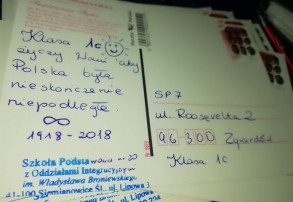 Klasa 1c
życzy Wam aby
Polska była
nieskończenie
niepodległa.
∞
1918-2018
Szkoła Podstawowa nr
z Oddziałami Integracyjnymi
im. Władysława Broniewskiego
41-100 Siemianowice Śl., ul. Lipowa
SP7
ul. Roosevelta 2
96 300 Żyrardów
Klasa 1c